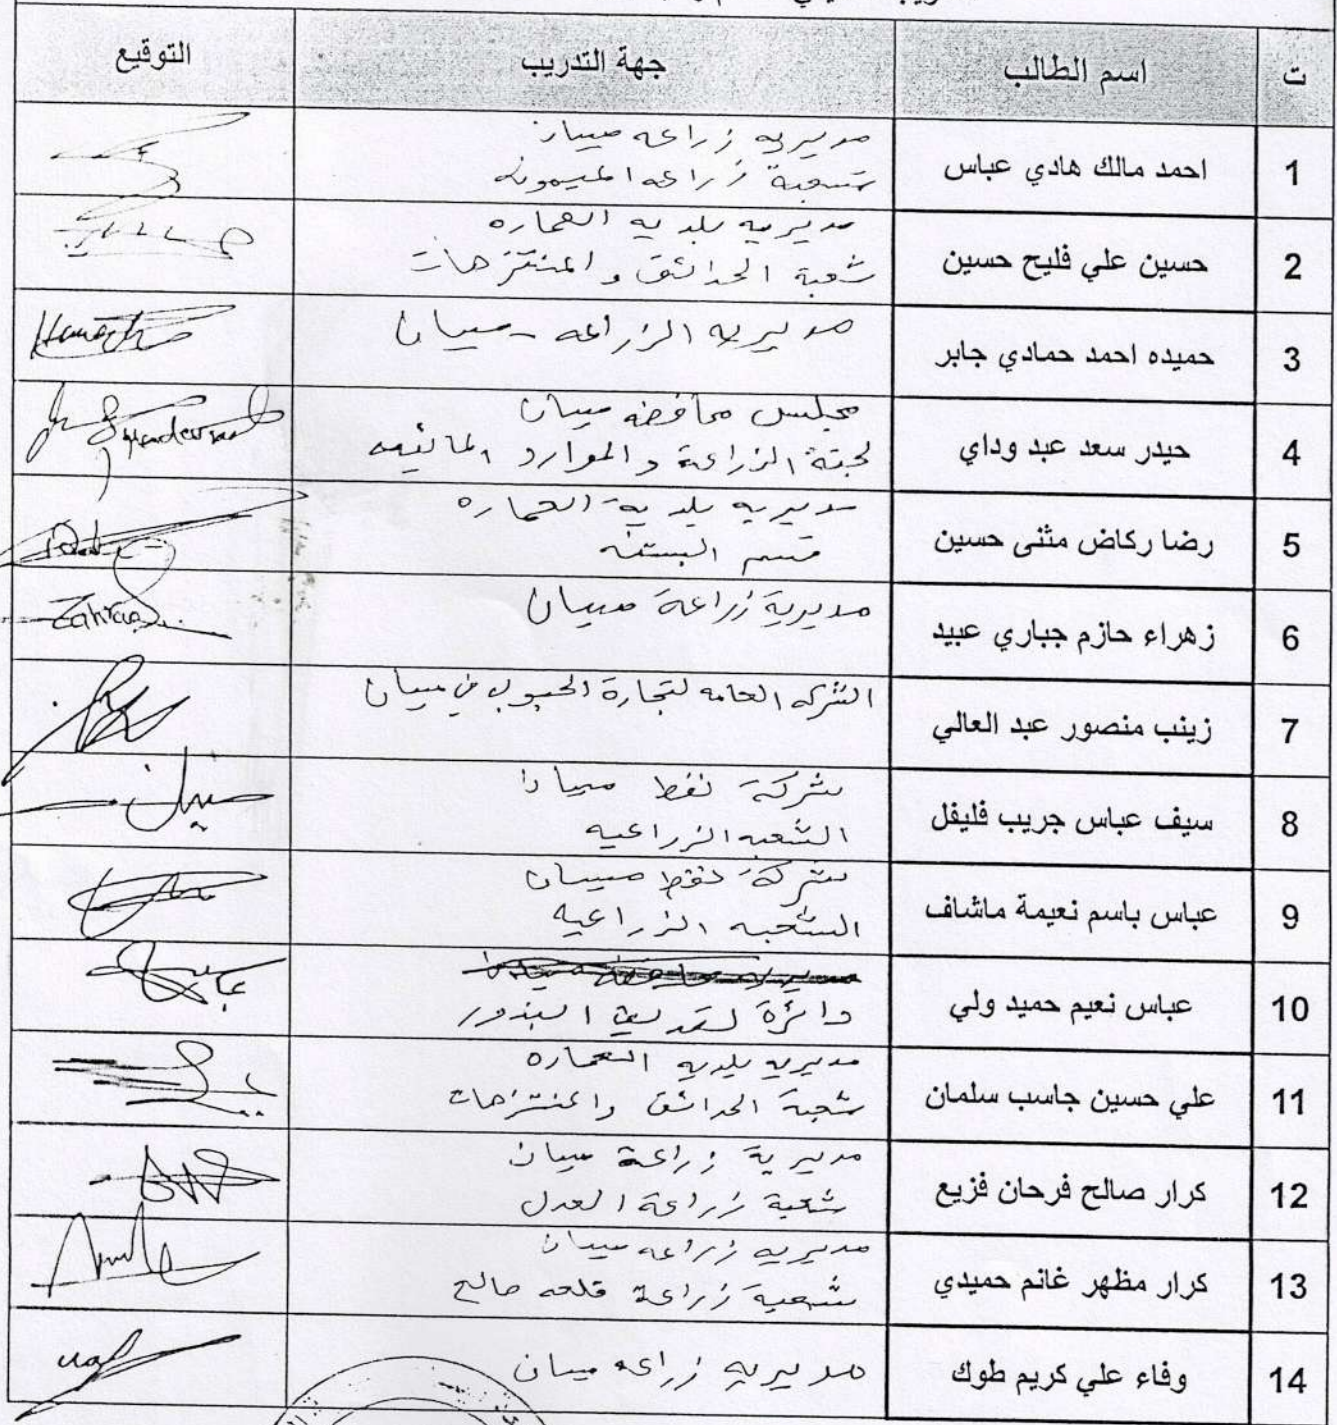 ت اسم الطالب جهة التدريب التوقيع
1 احمد مالك هادي عباس مديريه زراعه ميسان
شعبة زراعه الميمونه
2 حسين علي فليح حسين مديريه بلديه العماره
شعبة الحدائق و المنتزهات
3 حميده احمد حمادي جابر مديريه الزراعه - ميسان
4 حيدر سعد عبد وداي مجلس محافضه ميسان
لجنة الزراعة و الموارد المائيه
5 رضا ركاض مثنى حسين مديريه بلدية العماره
قسم البستنه
6 زهراء حازم جباري عبيد مديرية زراعة ميسان
Zahraa
7 زينب منصور عبد العالي الشركه العامه لتجارة الحبوب في ميسان
8 سيف عباس جريب فليفل شركة نفط ميسان
الشعبه الزراعيه
9 عباس باسم نعيمة ماشاف شركة نفط ميسان
الشعبه الزراعيه
10 عباس نعيم حميد ولي
دائرة تصديق البذور
11 علي حسين جاسب سلمان مديريه بلديه العماره
شعبة الحدائق والمنتزهات
12 كرار صالح فرحان فزيع مديرية زراعة ميسان
شعبة زراعة العدل
13 كرار مظهر غانم حميدي مديريه زراعه ميسان
شعبة زراعة قلعه صالح
14 وفاء علي كريم طوك مديريه زراعه ميسان